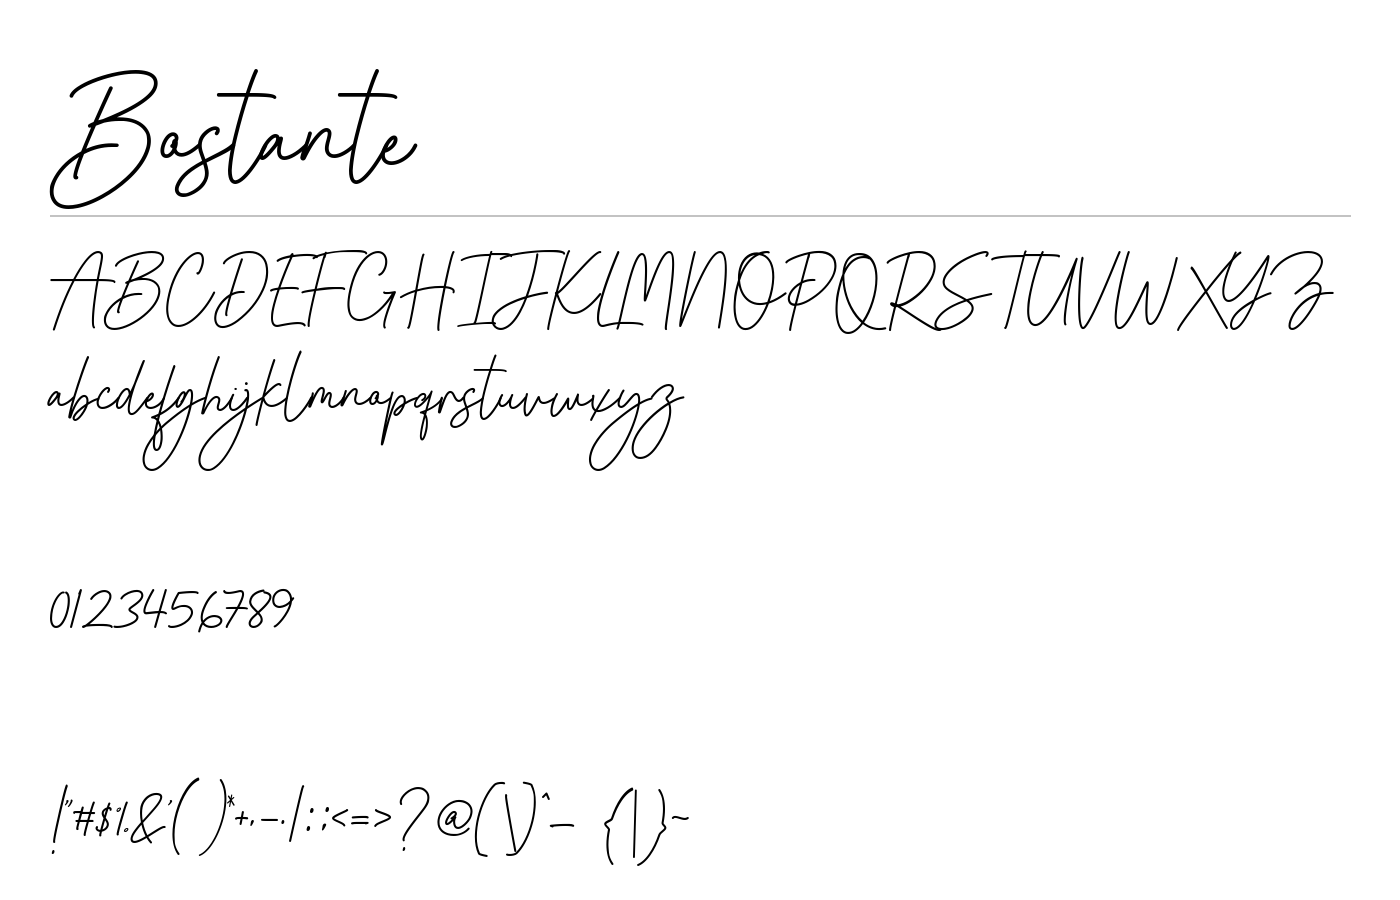 Bostante
ABCDEFGHIJKLMNOPQRSTUVWXYZ
abcdefghijklmnopqrstuvwxyz
0123456789
!"#$%&'()*+,-./:;<=>?@[\]^_{|}~